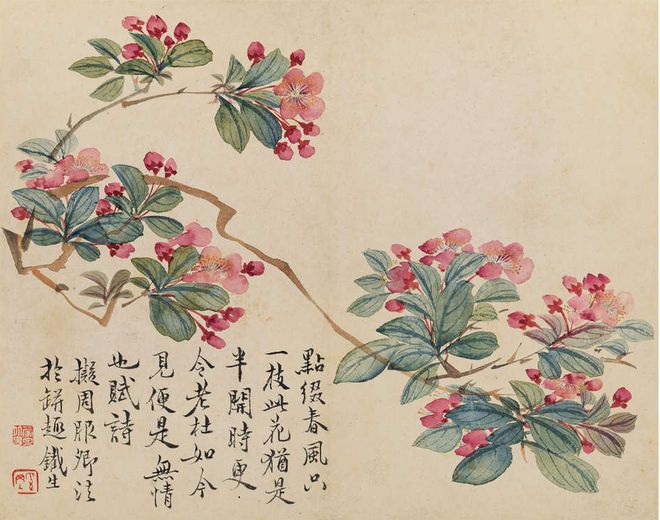 點綴春風只
一枝此花猶是
半開時更
令老杜如今
見便是無情
也賦詩
擬周服卿法
於趣鐵生